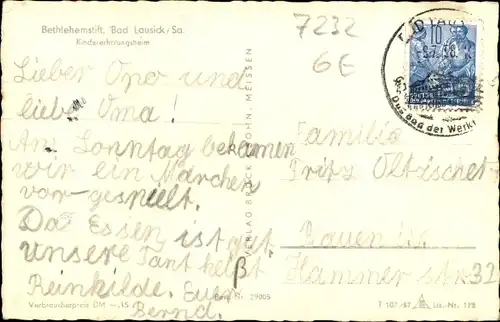 Bethlehemstift, Bad Lausick/Sa.
Kindererholungsheim
7232
6E
10
Das Bad der Werkt
Lieber Opa und
liebe Oma!
Am Sonntag bekamen
wir ein Märchen
vor-gespielt.
Das Essen ist gut
unsere Tant heißt
Reinkilde. Euer
Bernd.
VERLAG BRÜCK & SOHN, MEISSEN
Familie
Fritz Oltäscher
Bauen
Hammer str 32
Verbraucherpreis DM —,15
Best.-Nr. 29005
T 107/57 Lis.-Nr. 178